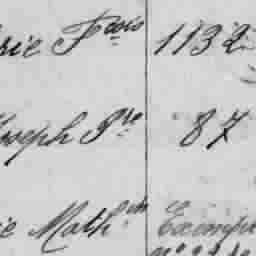 rie Fçois 1132
Joseph Pre 87
ie Math Exempt